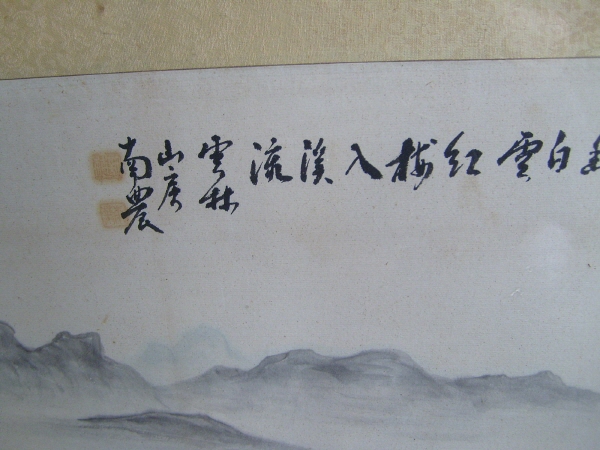 白雪紅梅入溪流
雲林
山房
南農